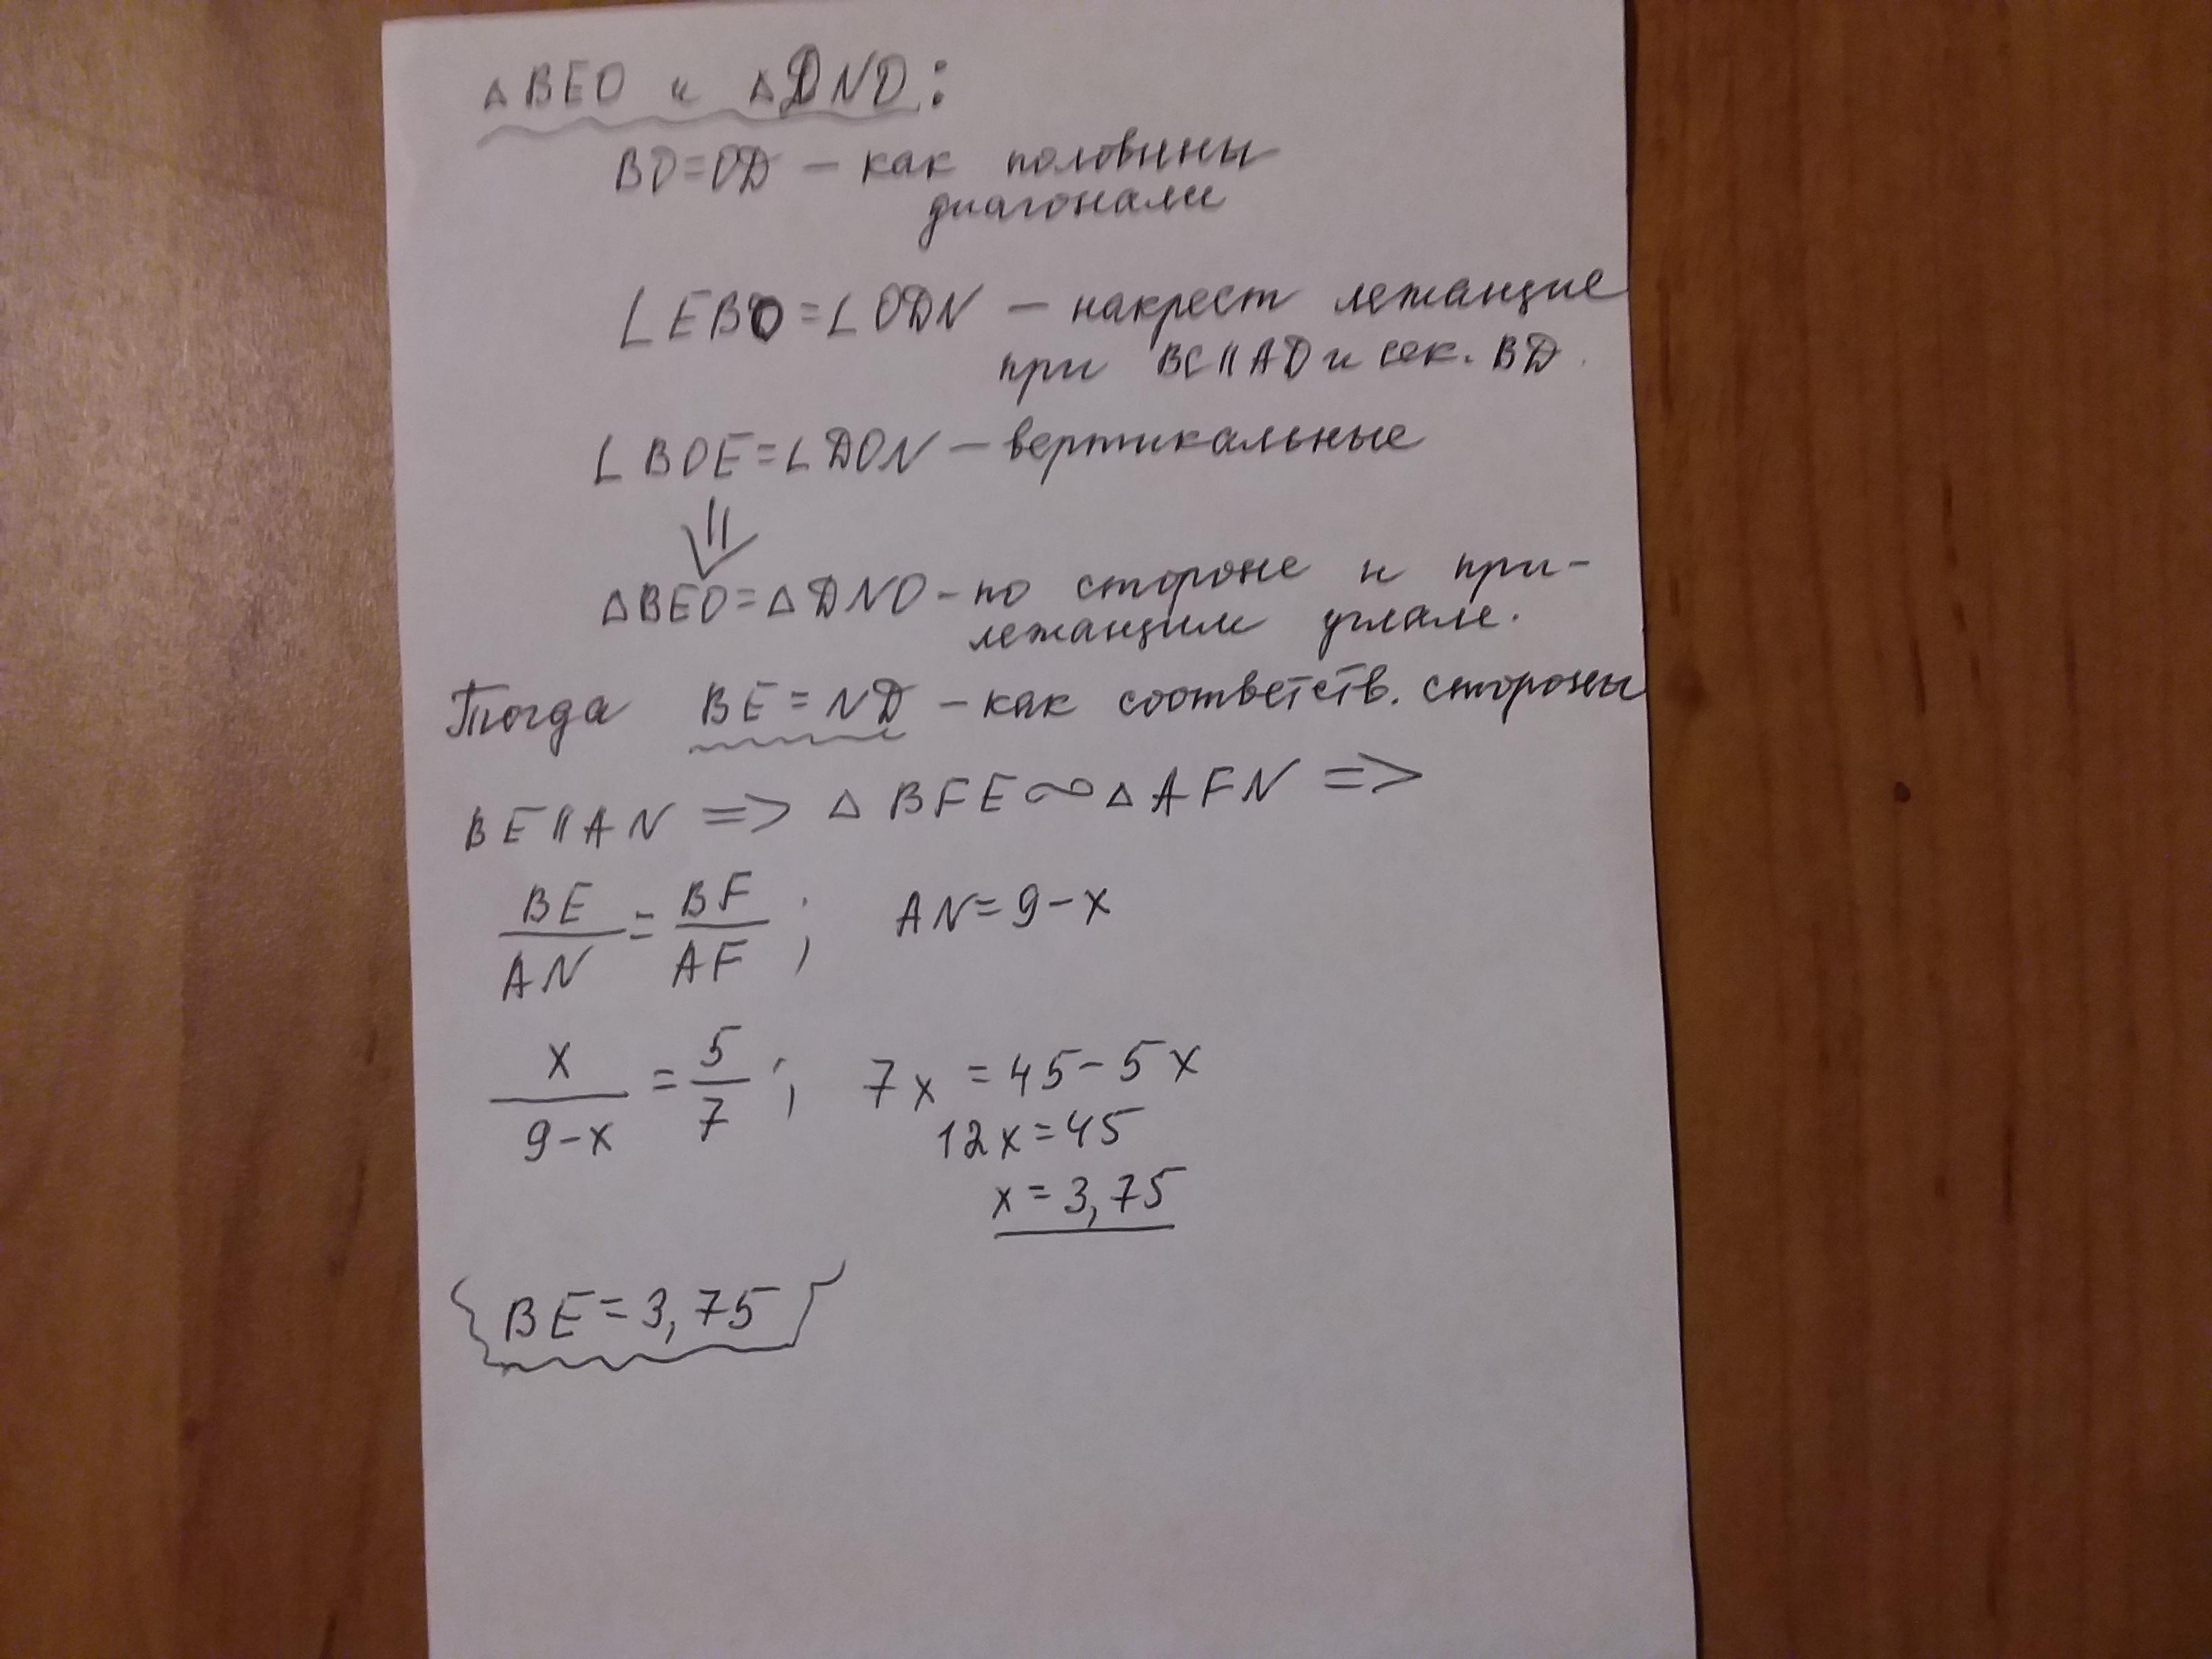 △BEO и △DNO:
BO=OD – как половины
диагонали
∠EBO=∠ODN – накрест лежащие
при BC||AD и сек. BD.
∠BOE=∠DON – вертикальные
⇓
△BEO=△DNO – по стороне и при-
лежащим углам.
Тогда BE=ND – как соответств. стороны
BE||AN => △BFE∾△AFN =>
BE/AN = BF/AF; AN=9-x
x/(9-x) = 5/7; 7x=45-5x
12x=45
x=3,75
BE=3,75